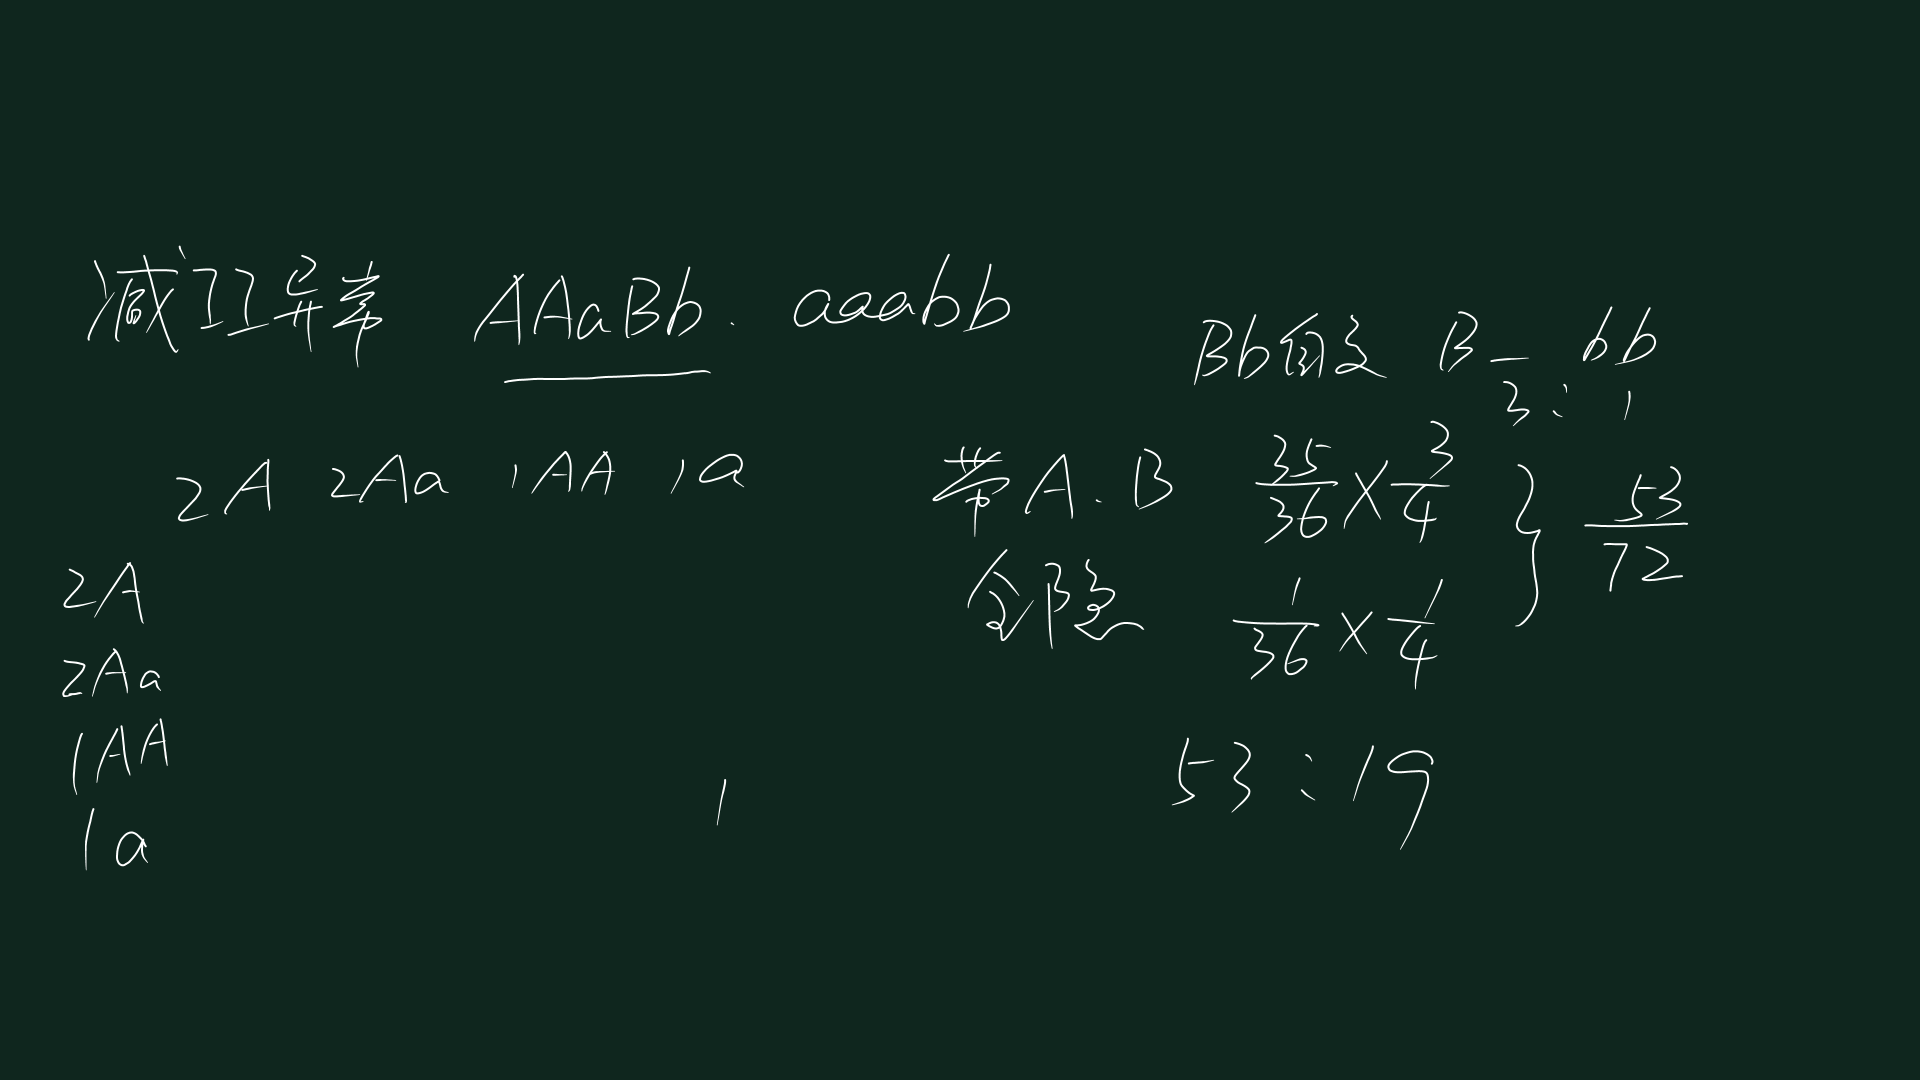 减II异常 AAaBb. aaabb
2A 2Aa 1AA 1a
2A
2Aa
1AA
1a
1
Bb自交 B_ bb
3 : 1
带A.B 35/36 × 3/4 } 53/72
全隐 1/36 × 1/4
53 : 19